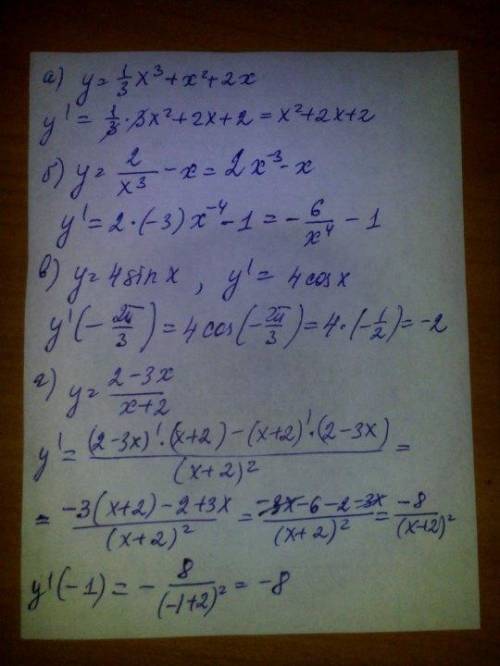 а) y = 1/3 x³ + x² + 2x
y' = 1/3 · 3x² + 2x + 2 = x² + 2x + 2
б) y = 2/x³ - x = 2x⁻³ - x
y' = 2 · (-3) x⁻⁴ - 1 = - 6/x⁴ - 1
в) y = 4 sin x , y' = 4 cos x
y' (- 2π/3) = 4 cos (- 2π/3) = 4 · (- 1/2) = -2
г) y = (2 - 3x)/(x + 2)
y' = ((2 - 3x)' · (x + 2) - (x + 2)' · (2 - 3x))/(x + 2)² =
= (-3(x + 2) - 2 + 3x)/(x + 2)² = (-3x - 6 - 2 - 3x)/(x + 2)² = -8/(x + 2)²
y' (-1) = - 8/(-1 + 2)² = -8